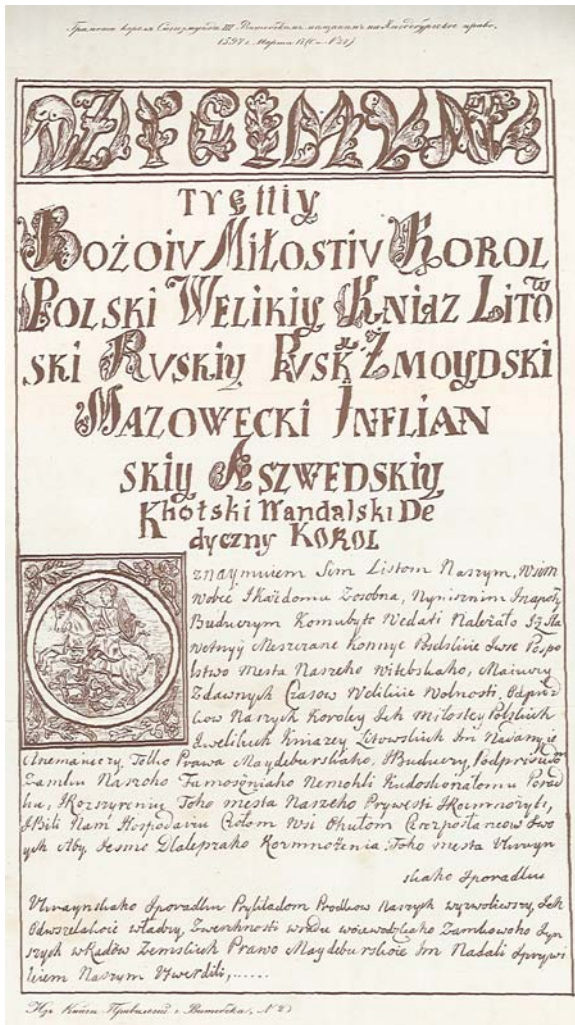 Грамота короля Сигизмунда III Витебскимъ мещанамъ на Магдебургское право,
1597 г. Марта 17 (Г. и. № 22)
ZIGIMUNT
TREtIiy
BOŻOIU MIŁOSTIU KOROL
POLSKI WELIKIY KNIAZ LITO W
SKI RUSKIY PRUSK ŻMOYDSKI
MAZOWECKI INFLIAN
SKIY A SZWEDSKIY
Khotski Wandalski De
dyczny KOROL
Oznaymuiem Sim Listom Naszym, Wsim
Wobec I Każdomu Zosobna, Nyniesznim I napoty
Buduczym Komubyto Wedati Należało Iż Sła
wetnyy Meszczane
Mesta Naszeho Witebskaho, Maiuczy
Zdawnych Czasow Welikie Wolnosti, Od pred
kow Naszych Koroley Ich Miłostey Polskich
I welikich Kniazey Litowskich Im Nadanyie
A nemaiuczy, Tolko Prawa Maydeburskaho, I Buduczy, Podprisudom
Zamku Naszoho Nemohli Kudoskonałomu Porad
ku, I Rozszyreniu Toho mesta Naszeho Prywesti I Rozmnożyti,
I Bili Nam Hospodaru Czołom Czerez Posłancow Swo
ych Aby Iesmo Dla lepszaho Rozmnożenia Toho mesta Ukrayn
skaho I poradku
Ukraynskaho I poradku Prykładom Prodkow Naszych wyzwoliwszy, Ich
Odwszelakoie władzy, Zwerchnosti wradu woiewodzkaho Zamkowoho I yn
szych wradow Zemskich Prawo Maydeburskoie Im Nadali I prywi
leiem Naszym Utwerdili,......
Изъ Книги Привилегій г. Витебска, № 2)